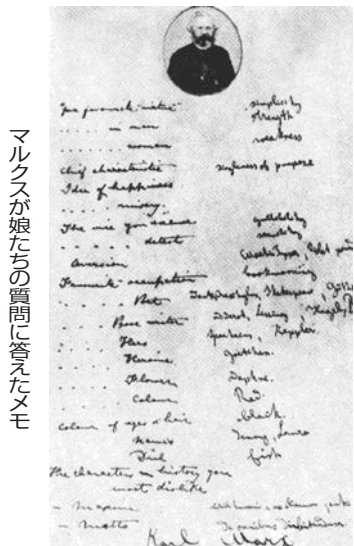 マルクスが娘たちの質問に答えたメモ
Your favourite virtue simplicity
. . . . . in man strength
. . . . . woman weakness
Chief characteristic singleness of purpose
Idea of happiness
. . . . . misery
The vice you excuse gullibility
. . . . . detest servility
Aversion Martin Tupper
Favourite occupation bookworming
. . . . . Poet Shakespeare
. . . . . Prose writer Diderot
. . . . . Hero Spartacus, Keppler
. . . . . Heroine Gretchen
. . . . . Flower Daphne
. . . . . Colour Red.
Colour of eyes & hair black.
. . . . . Names Jenny, Laura
. . . . . Dish fish
The characters in history you
most dislike
– Maxime
– Motto De omnibus dubitandum.
Karl Marx